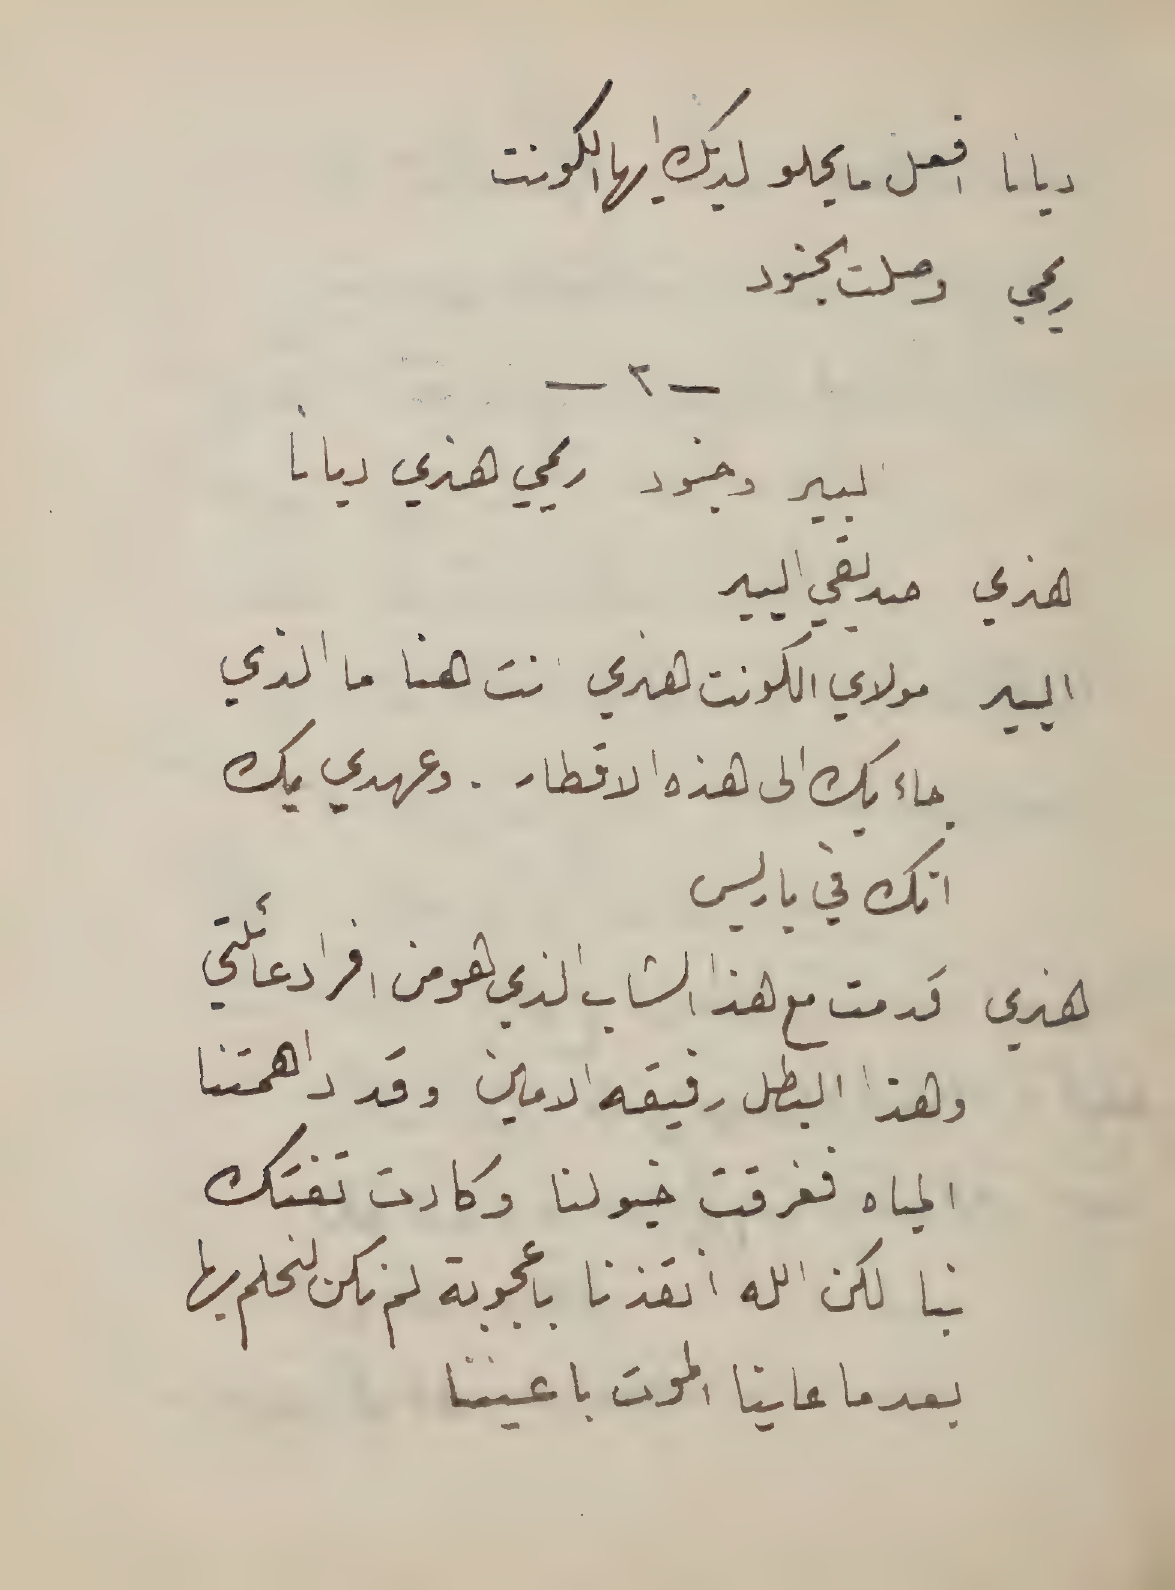 ديانا افعل ما يحلو لديك ايها الكونت
ريمي وصلت الجنود
— ٢ —
البير وجنود ريمي هنري ديانا
هنري صديقي البير
البير مولاي الكونت هنري انت هنا ما الذي
جاء بك الى هذه الاقطار . وعهدي بك
انك في باريس
هنري قدمت مع هذا الشاب الذي هو من افراد عائلتي
وهذا البطل رفيقه الامين وقد داهمتنا
المياه فغرقت خيولنا وكادت تفتك
بنا لكن الله انقذنا باعجوبة لم نكن لنحلم بها
بعد ما عاينا الموت باعيننا